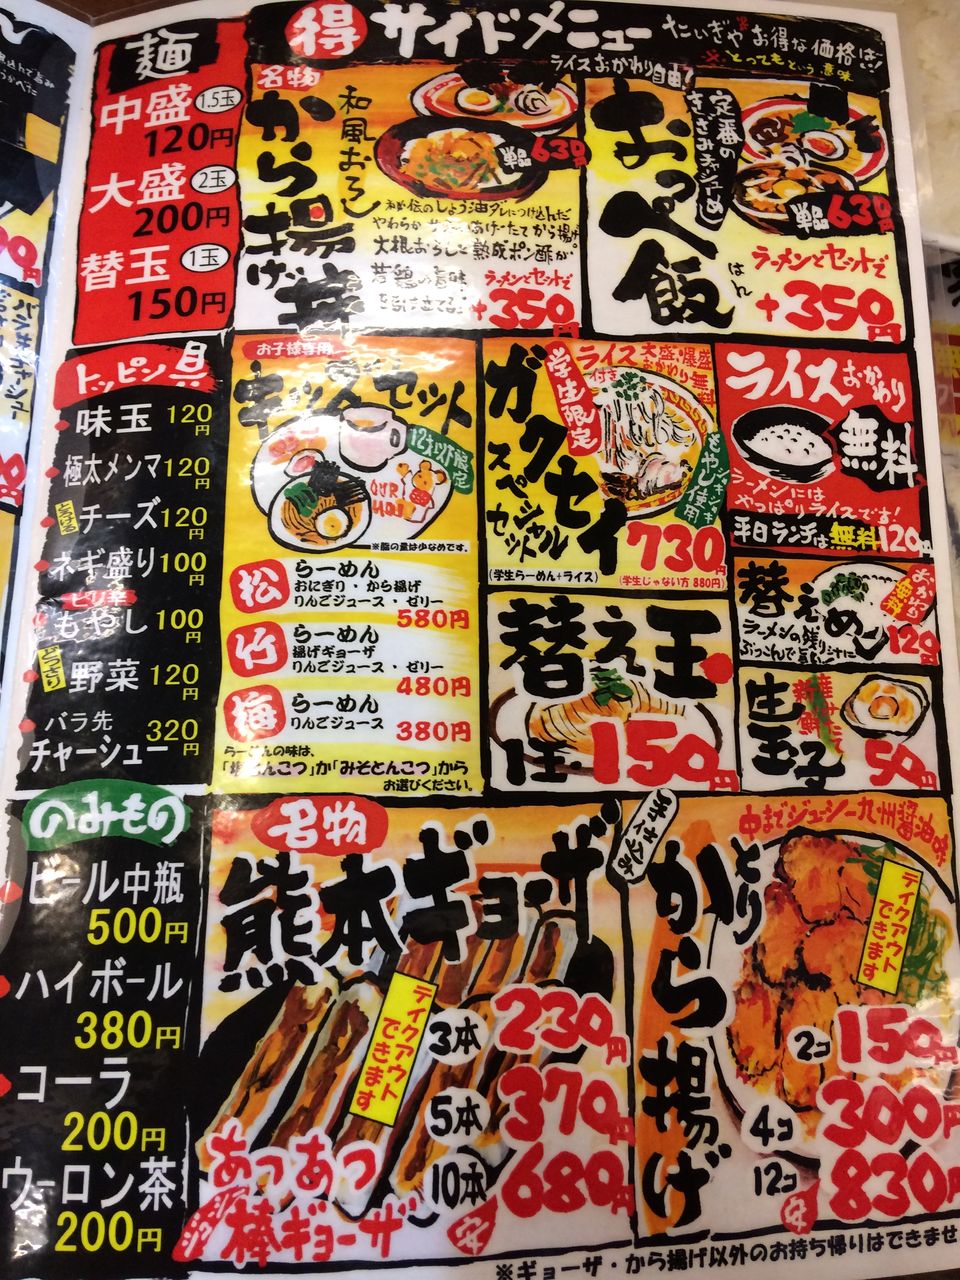 得 サイドメニュー
たいぎゃお得な価格ばい!
※とってもという意味
麺
中盛 1.5玉
120円
大盛 2玉
200円
替玉 1玉
150円
名物
から揚げ丼
和風おろし
単品 630円
やわらか
大根おろしと熟成ポン酢が
若鶏の旨味
ラーメンとセットで
+350円
ライスおかわり自由?
おっぺ飯
はん
定番の
きざみチャーシューめし
単品 630円
ラーメンとセットで
+350円
トッピン具
味玉 120円
極太メンマ 120円
とろける
チーズ 120円
ネギ盛り 100円
ピリ辛
もやし 100円
どっさり
野菜 120円
バラ先
チャーシュー 320円
お子様専用
キッズセット
12才以下限定
※麺の量は少なめです。
松 らーめん
おにぎり・から揚げ
りんごジュース・ゼリー
580円
竹 らーめん
揚げギョーザ
りんごジュース・ゼリー
480円
梅 らーめん
りんごジュース
380円
らーめんの味は、
「塩とんこつ」か「みそとんこつ」から
お選びください。
学生限定
ガクセイ
スペシャル
セット
ライス大盛・爆盛
付き おかわり無料
シャキシャキ
もやし使用
730円
(学生らーめん+ライス)
(学生じゃない方 880円)
ライスおかわり
無料
ラーメンには
やっぱりライスです!
平日ランチは無料 120円
替え玉
1玉 150円
替えめし
ラーメンの残り汁に
ぶっこんで
120円
生玉子
新鮮
50円
のみもの
ビール中瓶
500円
ハイボール
380円
コーラ
200円
ウーロン茶
200円
名物
熊本ギョーザ
テイクアウト
できます
3本 230円
5本 370円
10本 680円
あつあつ
ジュージュー
棒ギョーザ
中までジューシー九州醤油味
とり
から揚げ
テイクアウト
できます
2コ 150円
4コ 300円
12コ 830円
※ギョーザ・から揚げ以外のお持ち帰りはできませ